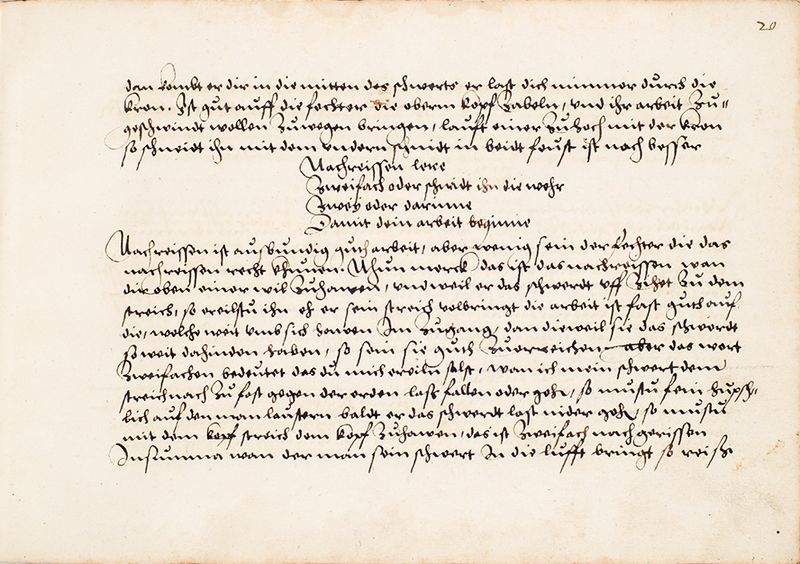 20
dan kombt er dir in die mitten des schwerts er last dich nimmer durch die
kron. Ist gut auff die fechter die oberm kopf zabeln, und ihr arbeit zu=
geschwindt wollen zuwegen bringen, lauft einer zuhoch mit der kron
so schneidt ihn mit dem undern schnidt in beidt feust ist noch besser
Nachreissen lere
Zweifach oder schnidt ihn die wehr
Zwey oder darinne
Damit dein arbeit beginne
Nachreissen ist ausbundig guth arbeit, aber wenig sein der fechter die das
nachreissen recht khunen. Nhun merck das ist das nachreissen wan
dir oben einer wil zuhawen, und weil er das schwerdt uff zihet zu dem
streich, so ereilstu ihn eh er sein streich volbringt die arbeit ist fast guth auf
die, welche weit umb sich hawen Im zugang, dan dieweil sie das schwerdt
so weit dahinden haben, so sein sie guth zuerreichen aber das wort
Zweifachen bedeutet das du mich ereiln solst, wan ich mein schwert dem
streich nach zu fast gegen der erden lass fallen oder gehn, so mustu fein hupsch=
lich auf den man laustern baldt er das schwerdt last nider gehn, so mustu
mit dem kopf streich dem kopf zuhawen, das ist zweifach nach gerissen
In summa wan der man sein schwert In die lufft bringt so reiss